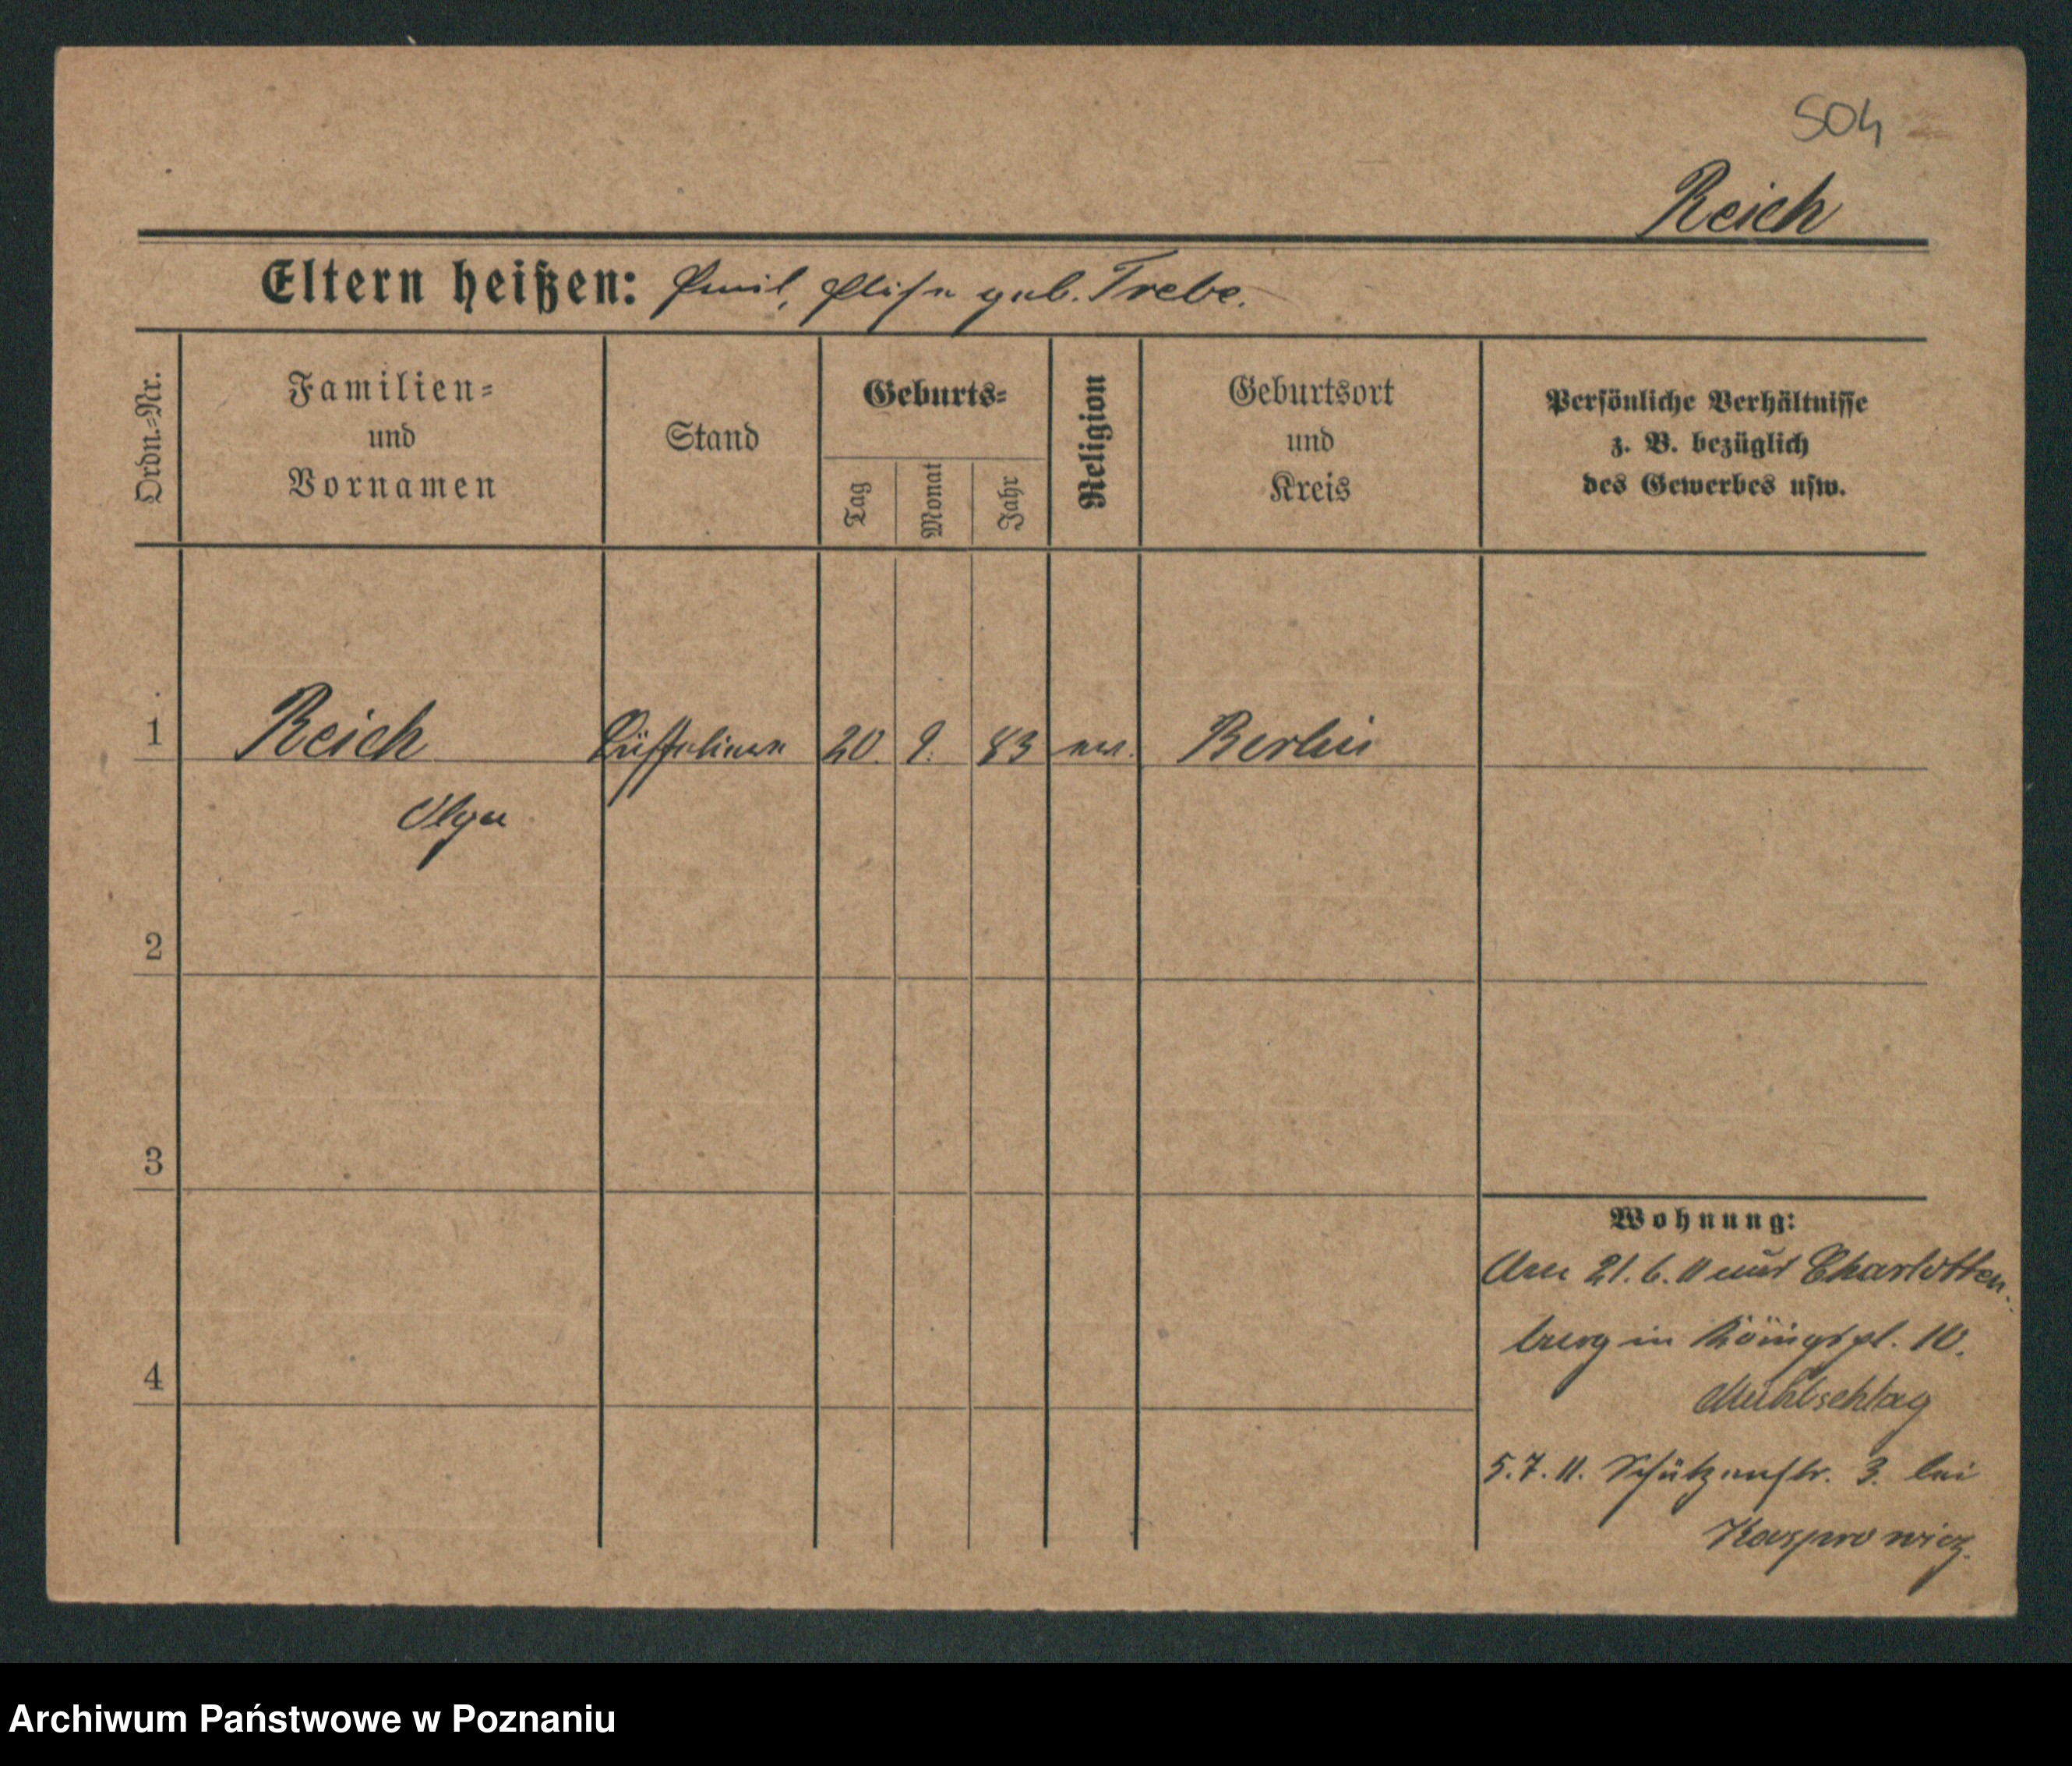 504
Reich
Eltern heißen: Emil, Elise geb. Trebe.
Ordn.-Nr.
Familien-
und
Vornamen
Stand
Geburts-
Tag
Monat
Jahr
Religion
Geburtsort
und
Kreis
Persönliche Verhältnisse
z. B. bezüglich
des Gewerbes usw.
1 Reich 20. 9. 83 ev. Berlin
Olga
2
3
4
Wohnung:
21.6.11 aus Charlotten-
burg in Königspl. 10.
Mühlschlag
5.7.11. Schützenstr. 3. bei
Kasprowicz.
Archiwum Państwowe w Poznaniu